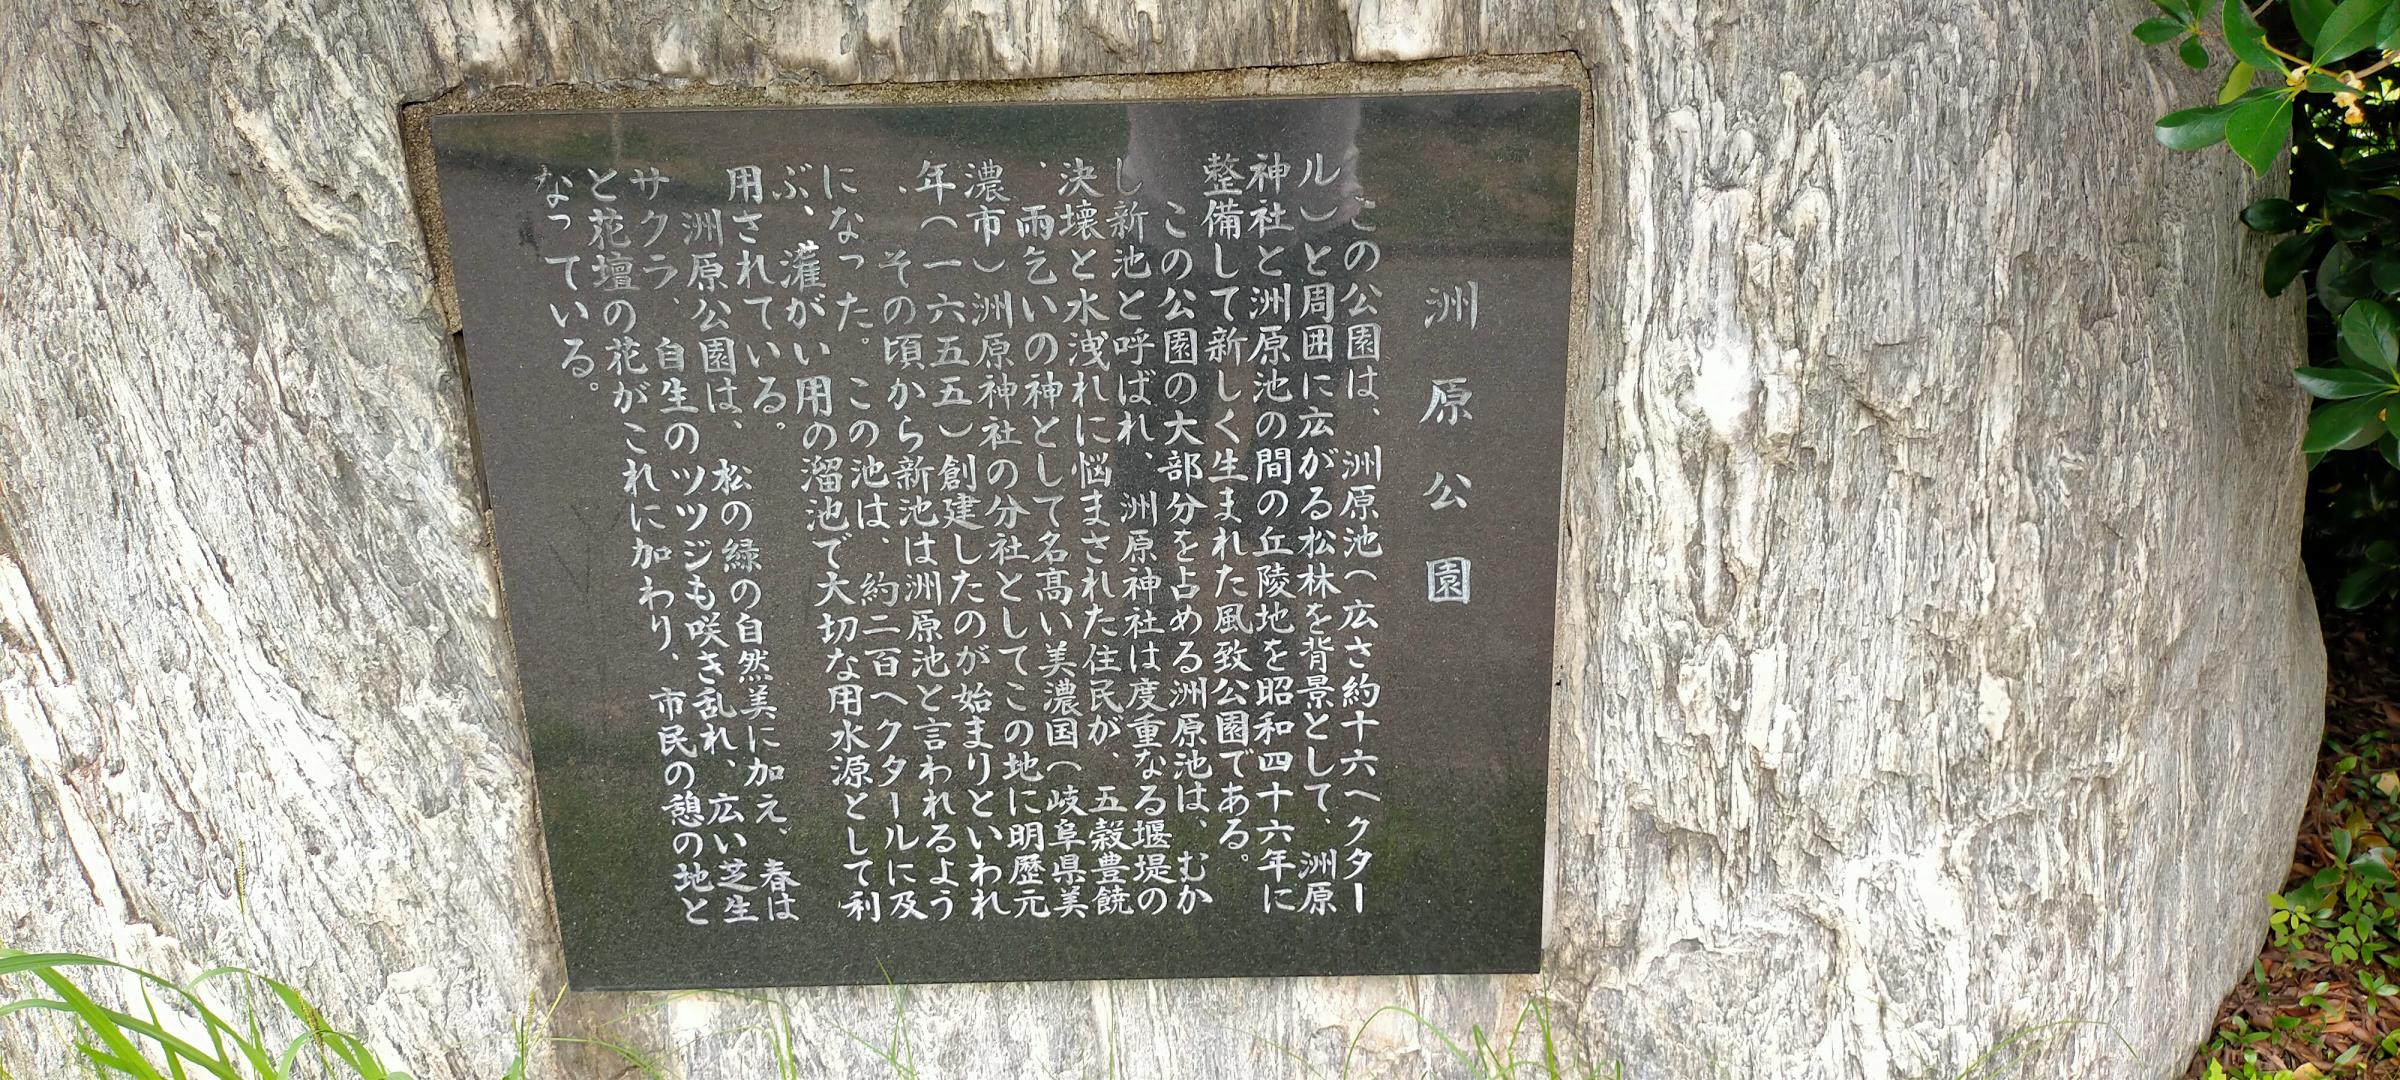 洲原公園
この公園は、洲原池(広さ約十六ヘクター
ル)と周囲に広がる松林を背景として、洲原
神社と洲原池の間の丘陵地を昭和四十六年に
整備して新しく生まれた風致公園である。
この公園の大部分を占める洲原池は、むか
し新池と呼ばれ、洲原神社は度重なる堰堤の
決壊と水洩れに悩まされた住民が、五穀豊饒
、雨乞いの神として名髙い美濃国(岐阜県美
濃市)洲原神社の分社としてこの地に明歴元
年(一六五五)創建したのが始まりといわれ
、その頃から新池は洲原池と言われるよう
になった。この池は、約二百ヘクタールに及
ぶ、灌がい用の溜池で大切な用水源として利
用されている。
洲原公園は、松の緑の自然美に加え、春は
サクラ、自生のツツジも咲き乱れ、広い芝生
と花壇の花がこれに加わり、市民の憩の地と
なっている。